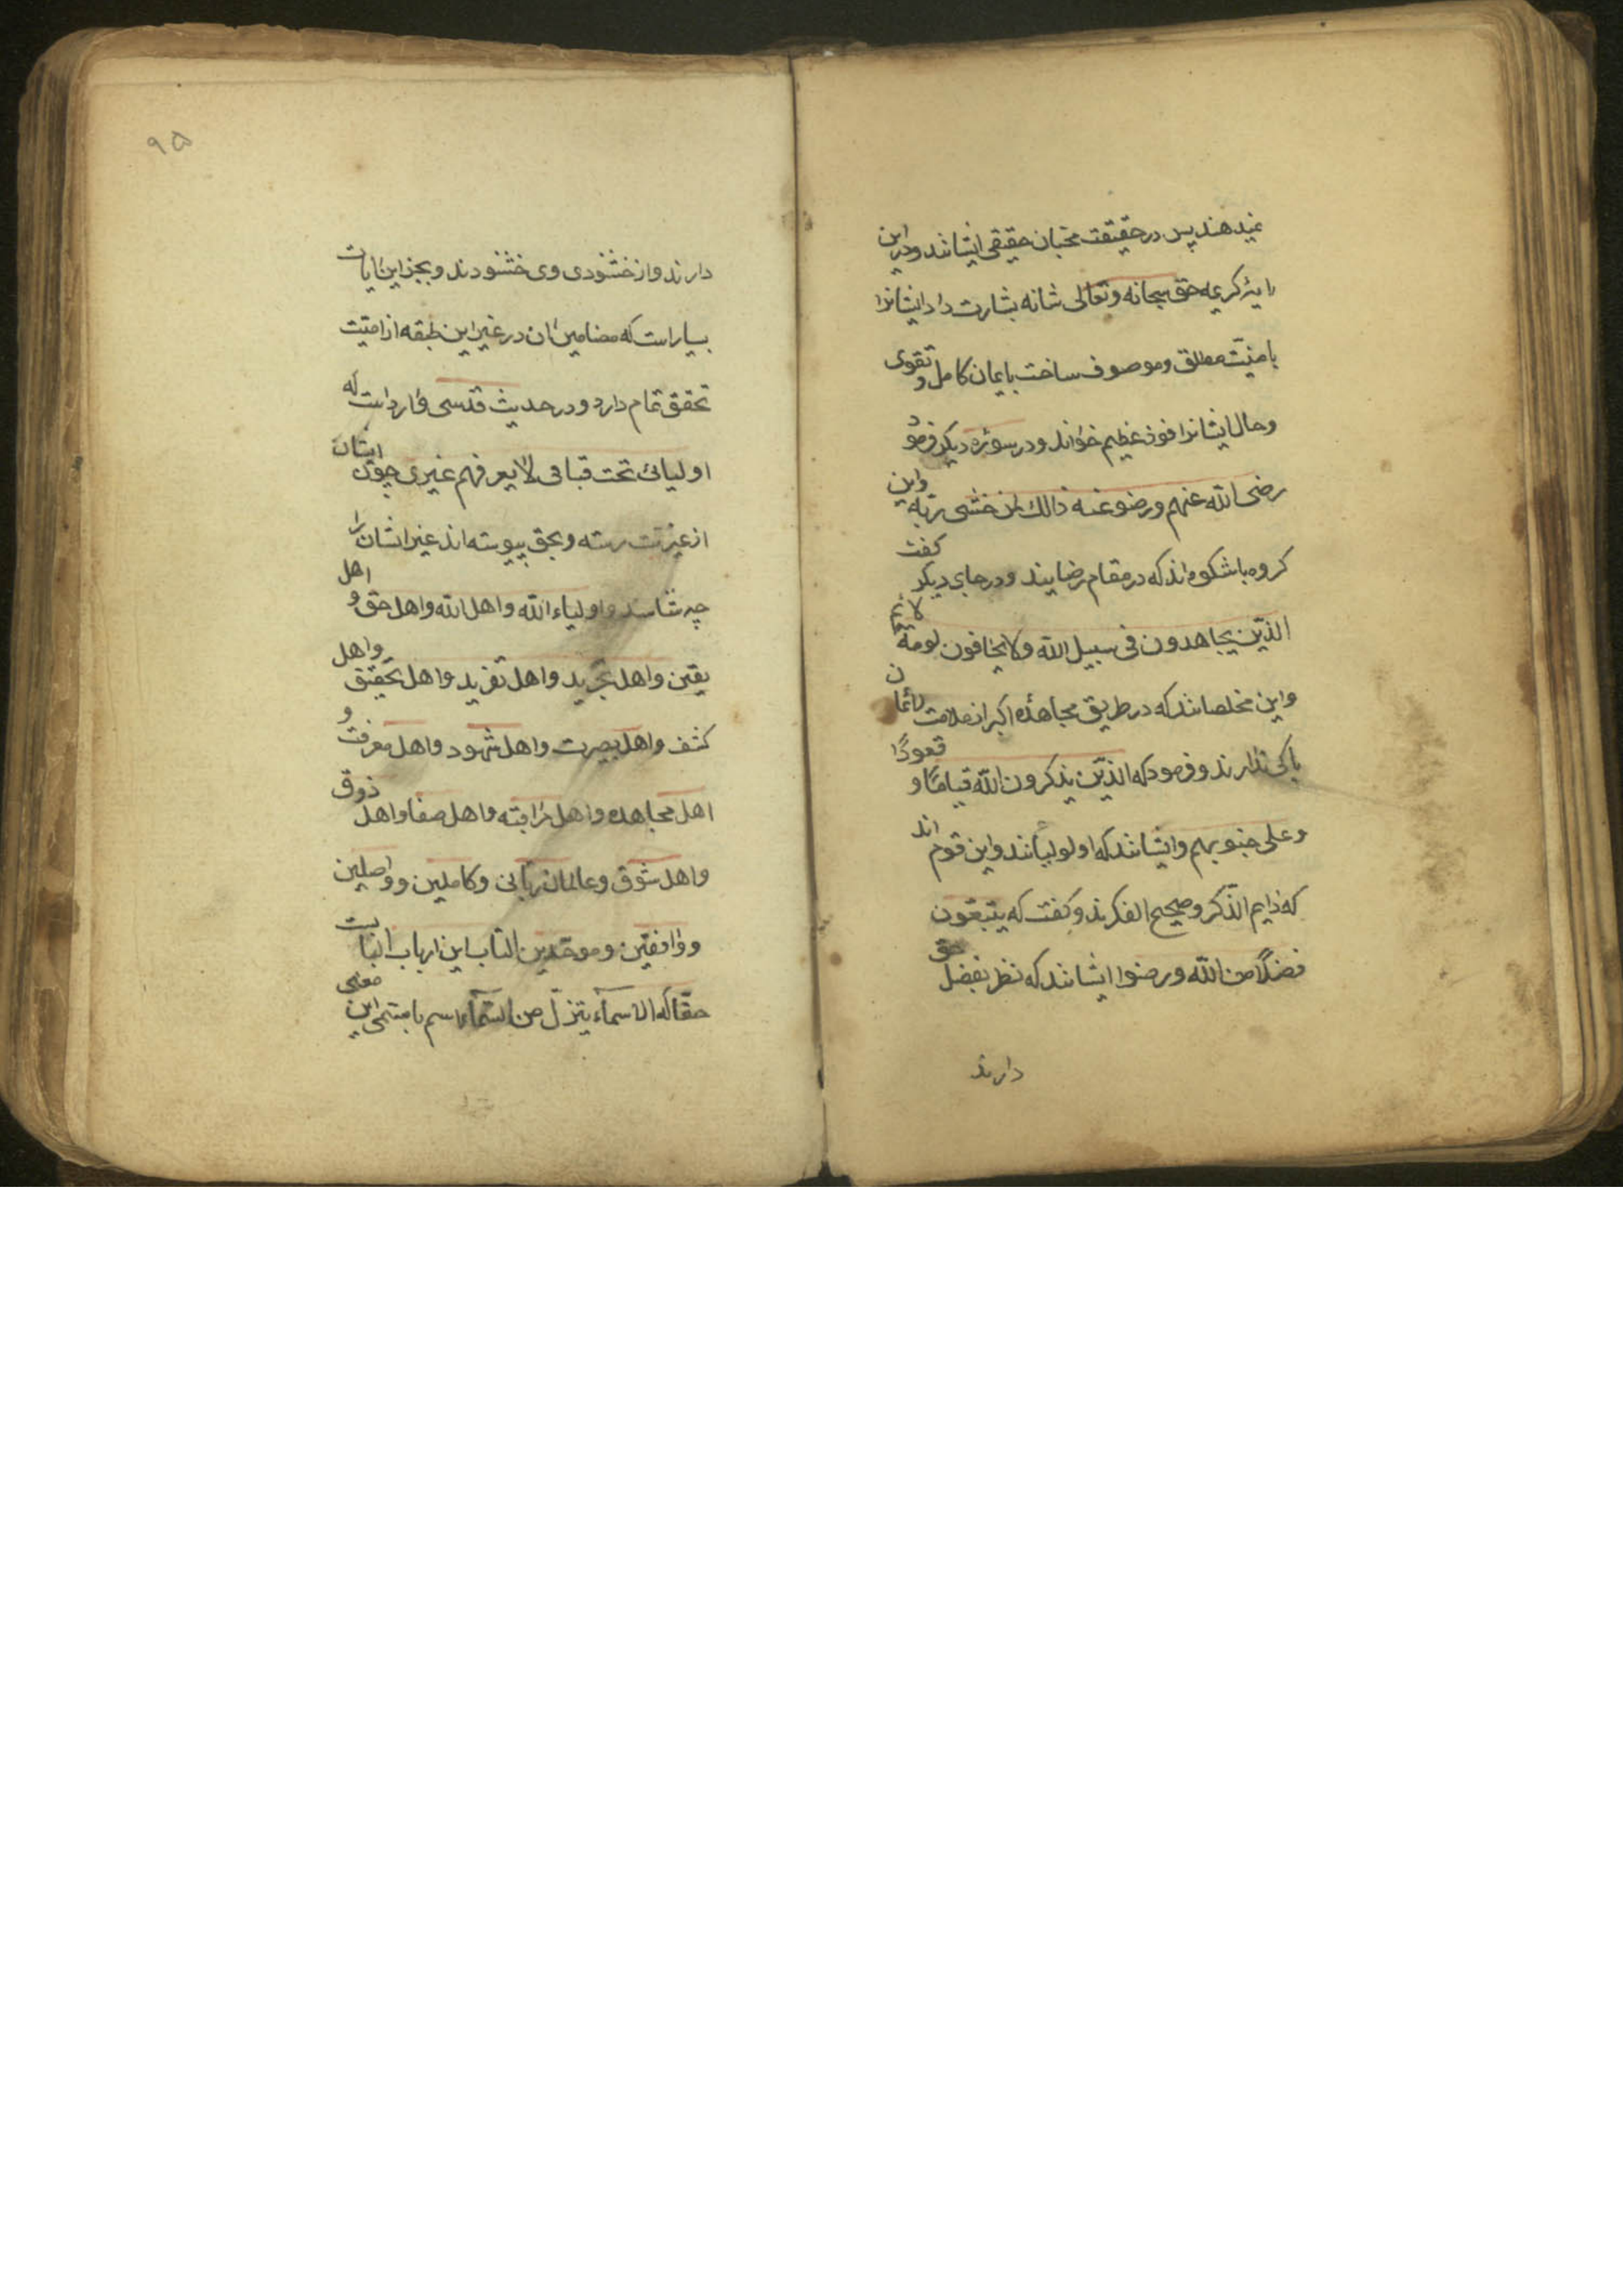 نمیدهند پس در حقیقت محبان حقیقی ایشانند و درین
رایهٔ کریمه حق سبحانه وتعالی شانه بشارت داد ایشانرا
بامنیّت مطلق وموصوف ساخت بایمان کامل و تقوی
وحال ایشانرا فوز عظیم خواند ودر سوره دیکر فرمود
رضی الله عنهم ورضوعنه ذالك لمن خشی ربّه واین
کروه باشکوه اند که در مقام رضایند ودر جای دیکر کفت
الذین یجاهدون فی سبیل الله ولا یخافون لومة لائم
واین مخلصانند که در طریق مجاهدهٔ اکبر از ملامت لائمان
باکی ندارند وفرمود که الذین یذکرون الله قیامًا و قعودًا
وعلی جنوبهم وایشانند که اولو لبانند واین قوم اند
که دایم الذکر وصحیح الفکرند وکفت که یبتغون
فضلًا من الله ورضوا ایشانند که نظر بفضل حق
دارند
۹۵
دارند واز خشنودی وی خشنودند وبجز این ایات
بسیار است که مضامین ان در غیر این طبقه از امّت
تحقق تمام دارد ودر حدیث قدسی وارد است که
اولیائ تحت قبائی لا یعرفهم غیری چون ایشان
از غیریّت رسته وبحق پیوسته اند غیر ایشان را
چه شناسد و اولیاء الله واهل الله واهل حق و اهل
یقین واهل تجرید واهل تفرید واهل تحقیق واهل
کشف واهل بصیرت واهل شهود واهل معرفت و
اهل مجاهده واهل مراقبه واهل صفا واهل ذوق
واهل شوق وعالمان ربّانی وکاملین و واصلین
وواقفین وموحّدین القاب این ارباب البابست
حقا که الاسماء یتنزّل من السّماء اسم با مسمّی این معنی